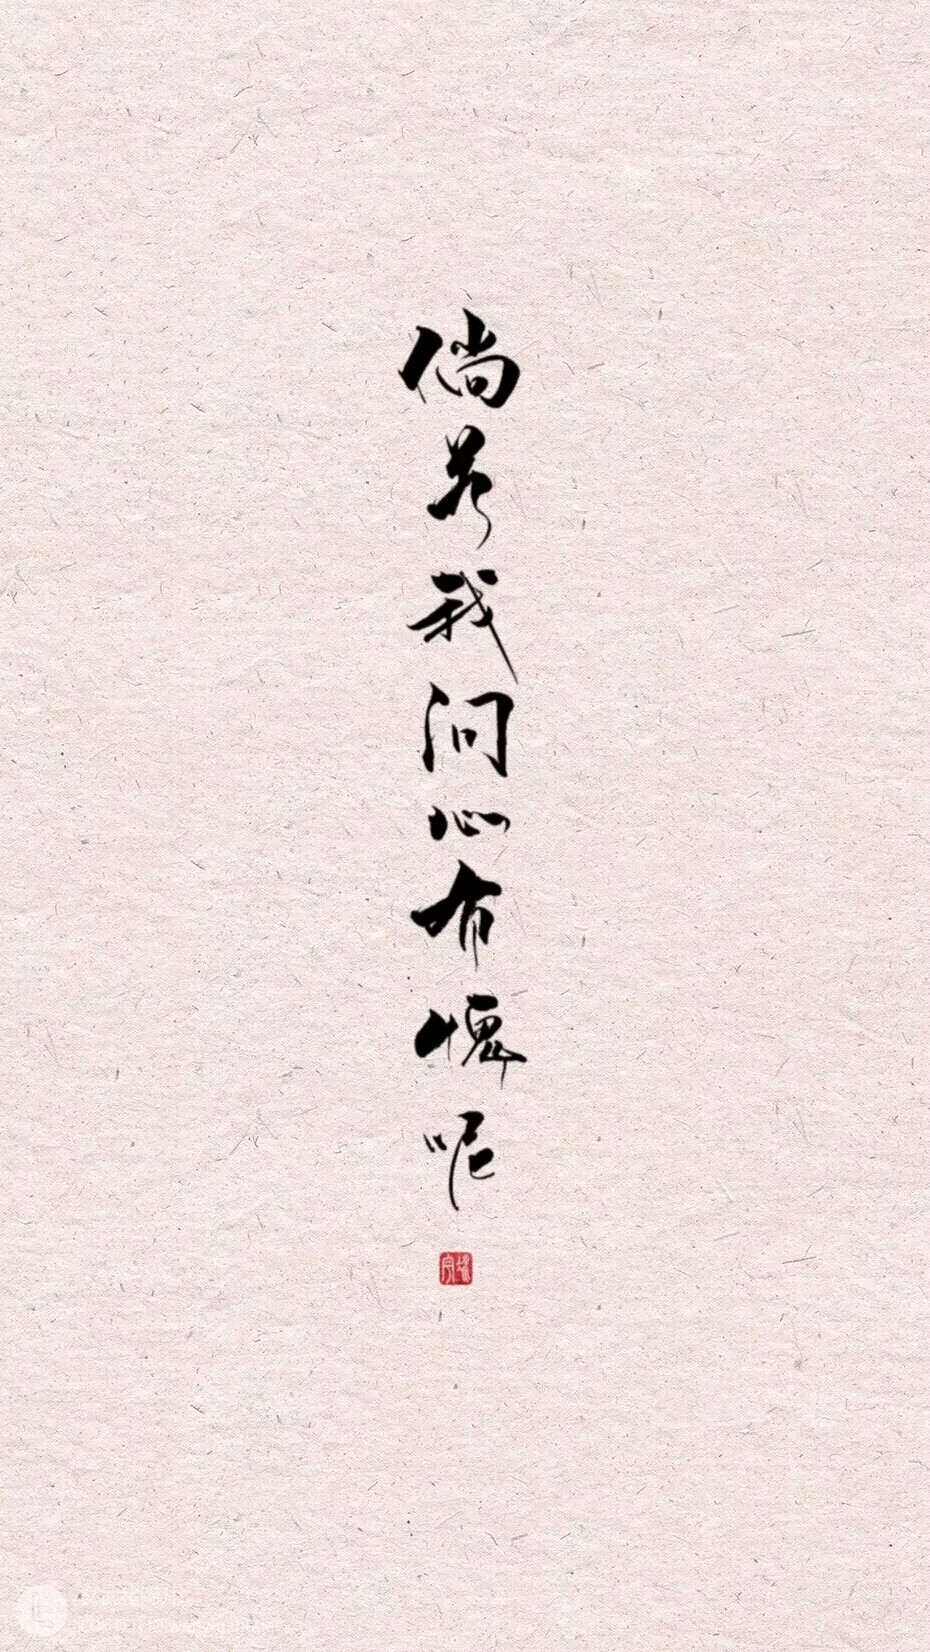 倘若我问心有愧呢